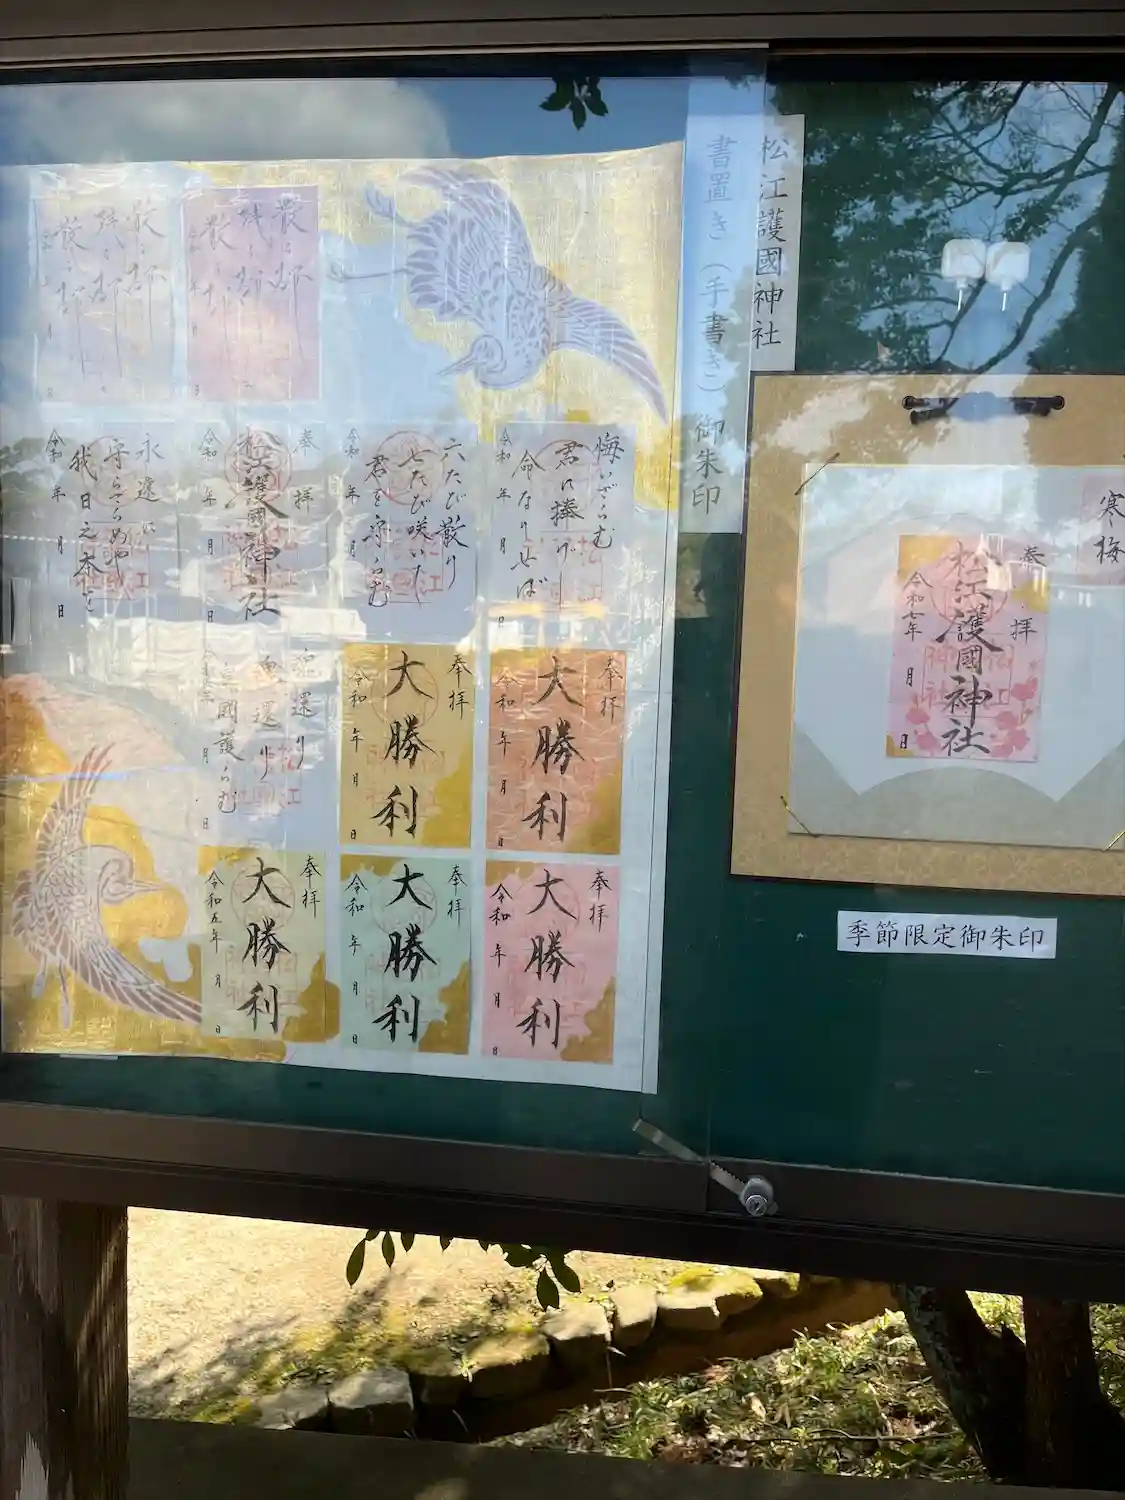 松江護國神社
書置き（手書き）御朱印
散る
桜も
散る
桜
悔いざらむ
君に捧げし
命なりせば
令和
年
月
日
六たび散り
七たび咲いた
君を守らむ
令和
年
月
奉拝
松江護國神社
令和
年
月
日
永遠に
守らざらめや
我日之本を
令和
年
月
日
魂還り
魂還り
皇國護らむ
月
日
奉拝
大勝利
令和
年
月
日
奉拝
大勝利
令和
年
月
日
奉拝
大勝利
令和五年
月
日
奉拝
大勝利
令和
年
月
日
奉拝
大勝利
令和
年
月
日
寒梅
奉拝
松江護國神社
令和七年
月
日
季節限定御朱印